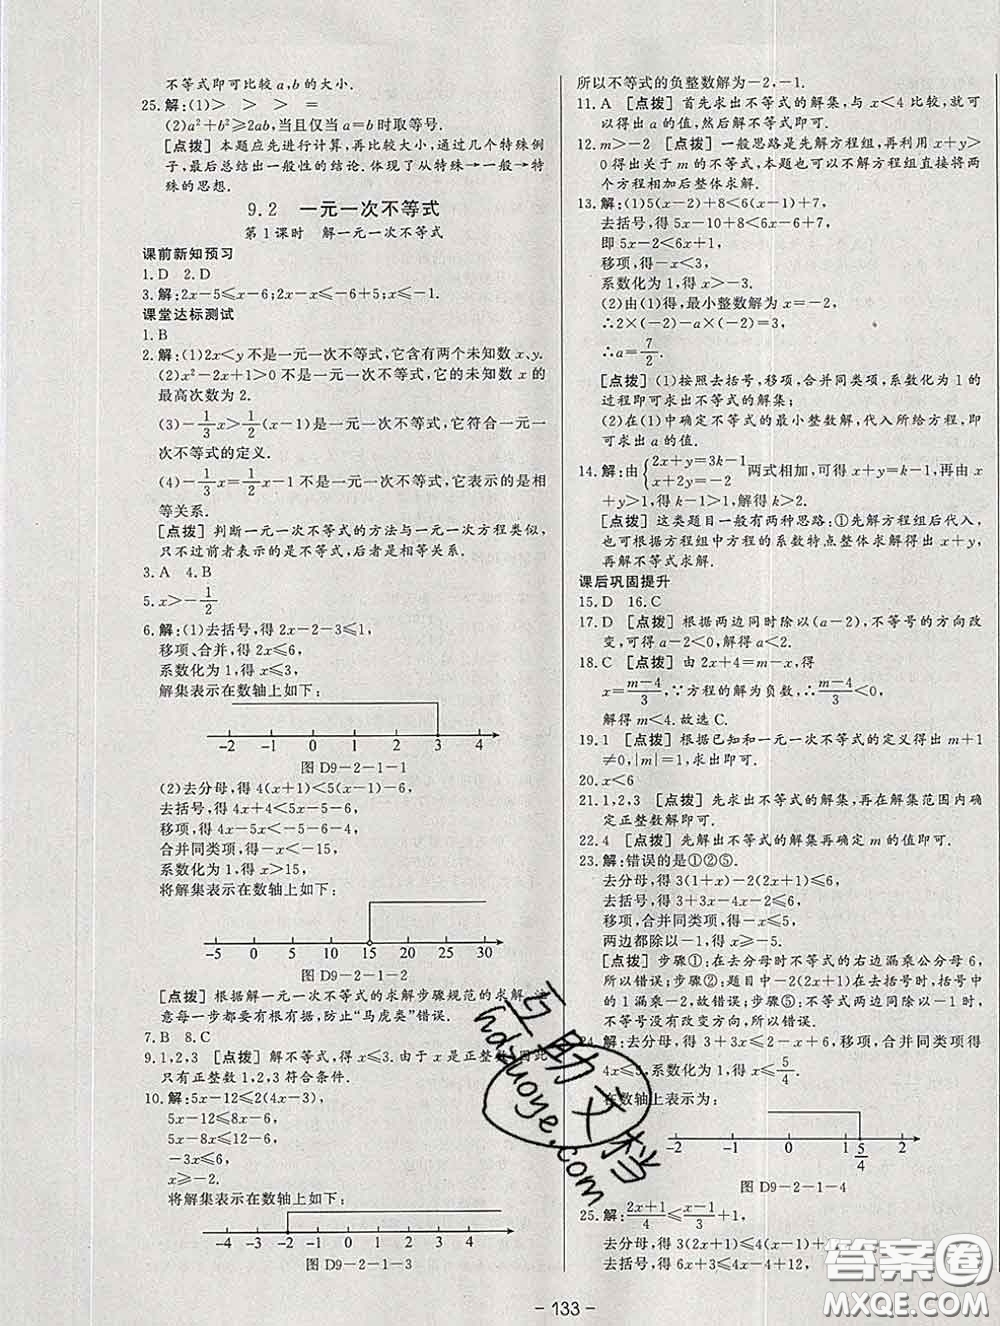 不等式即可比较 a,b 的大小.
25.解:(1)> > > =
(2)a²+b²≥2ab,当且仅当 a=b 时取等号.
[点拨] 本题应先进行计算,再比较大小,通过几个特殊例
子,最后总结出一般性的结论.体现了从特殊→一般→特
殊的思想.
9.2 一元一次不等式
第1课时 解一元一次不等式
课前新知预习
1.D 2.D
3.解:2x-5≤x-6;2x-x≤-6+5;x≤-1.
课堂达标测试
1.B
2.解:(1)2x<y 不是一元一次不等式,它含有两个未知数 x、y.
(2)x²-2x+1>0 不是一元一次不等式,它的未知数 x 的
最高次数为 2.
(3)-1/3x>1/2(x-1)是一元一次不等式,它符合一元一
次不等式的定义.
(4)-1/3x=1/2x-1 不是一元一次不等式,它表示的是相
等关系.
[点拨] 判断一元一次不等式的方法与一元一次方程类似,
只不过前者表示的是不等式,后者是相等关系.
3.A 4.B
5.x>-1/2
6.解:(1)去括号,得 2x-2-3≤1,
移项、合并,得 2x≤6,
系数化为 1,得 x≤3,
解集表示在数轴上如下:
-2 -1 0 1 2 3 4
图 D9-2-1-1
(2)去分母,得 4(x+1)<5(x-1)-6,
去括号,得 4x+4<5x-5-6,
移项,得 4x-5x<-5-6-4,
合并同类项,得-x<-15,
系数化为 1,得 x>15,
将解集表示在数轴上如下:
-5 0 5 10 15 20 25 30
图 D9-2-1-2
[点拨] 根据解一元一次不等式的求解步骤规范的求解,注
意每一步都要有根有据,防止“马虎类”错误.
7.B 8.C
9.1,2,3 [点拨] 解不等式,得 x≤3.由于 x 是正整数,因此
只有正整数 1,2,3 符合条件.
10.解:5x-12≤2(4x-3),
5x-12≤8x-6,
5x-8x≤12-6,
-3x≤6,
x≥-2.
将解集表示在数轴上如下:
-4 -3 -2 -1 0 1 2 3 4
图 D9-2-1-3
所以不等式的负整数解为-2,-1.
11.A [点拨] 首先求出不等式的解集,与 x<4 比较,就可
以得出 a 的值,然后解不等式即可.
12.m>-2 [点拨] 一般思路是先解方程组,再利用 x+y>
0 得出关于 m 的不等式,本题也可以不解方程组直接将两
个方程相加后整体求解.
13.解:(1)5(x-2)+8<6(x-1)+7,
去括号,得 5x-10+8<6x-6+7,
即 5x-2<6x+1,
移项,得-x<3,
系数化为 1,得 x>-3.
(2)由(1)得,最小整数解为 x=-2,
∴2×(-2)-a×(-2)=3,
∴a=7/2.
[点拨] (1)按照去括号,移项,合并同类项,系数化为 1 的
过程即可求出不等式的解集;
(2)在(1)中确定不等式的最小整数解,代入所给方程,即
可求出 a 的值.
14.解:由{2x+y=3k-1 x+2y=-2 两式相加,可得 x+y=k-1,再由 x
+y>1,得 k-1>1,解得 k>2.
[点拨] 这类题目一般有两种思路:①先解方程组后代入,
也可根据方程组中方程的系数特点整体求解得出 x+y,
再解不等式求解.
课后巩固提升
15.D 16.C
17.D [点拨] 根据两边同时除以(a-2),不等号的方向改
变,可得 a-2<0,解得 a<2.
18.C [点拨] 由 2x+4=m-x,得
x=m-4/3,∵方程的解为负数,∴m-4/3<0,
解得 m<4.故选 C.
19.1 [点拨] 根据已知和一元一次不等式的定义得出 m+1
≠0,|m|=1,求出即可.
20.x<6
21.1,2,3 [点拨] 先求出不等式的解集,再在解集范围内确
定正整数解即可.
22.4 [点拨] 先解出不等式的解集再确定 m 的值即可.
23.解:错误的是①②⑤.
去分母,得 3(1+x)-2(2x+1)≤6,
去括号,得 3+3x-4x-2≤6,
移项,合并同类项,得-x≤5,
两边都除以-1,得 x≥-5.
[点拨] 步骤①:在去分母时不等式的右边漏乘公分母 6,
所以错误;步骤②;题目中-2(2x+1)去括号时,括号中
的 1 漏乘-2,故错误;步骤⑤:不等式两边除以-1 时,
不等号没有改变方向,故错误.
24.解:去分母,得 3x+3≤2-x+6,移项,合并同类项得
4x≤5,系数化为 1,得 x≤5/4.
在数轴上表示为:
-2 -1 0 1 5/4 2
图 D9-2-1-4
25.解:2x+1/4≤x-1/3+1,
去分母,得 3(2x+1)≤4(x-1)+
去括号,得 6x+3≤4x-4+12,
- 133 -
互助文档
hdzuoye.com
答案圈
MXQE.COM